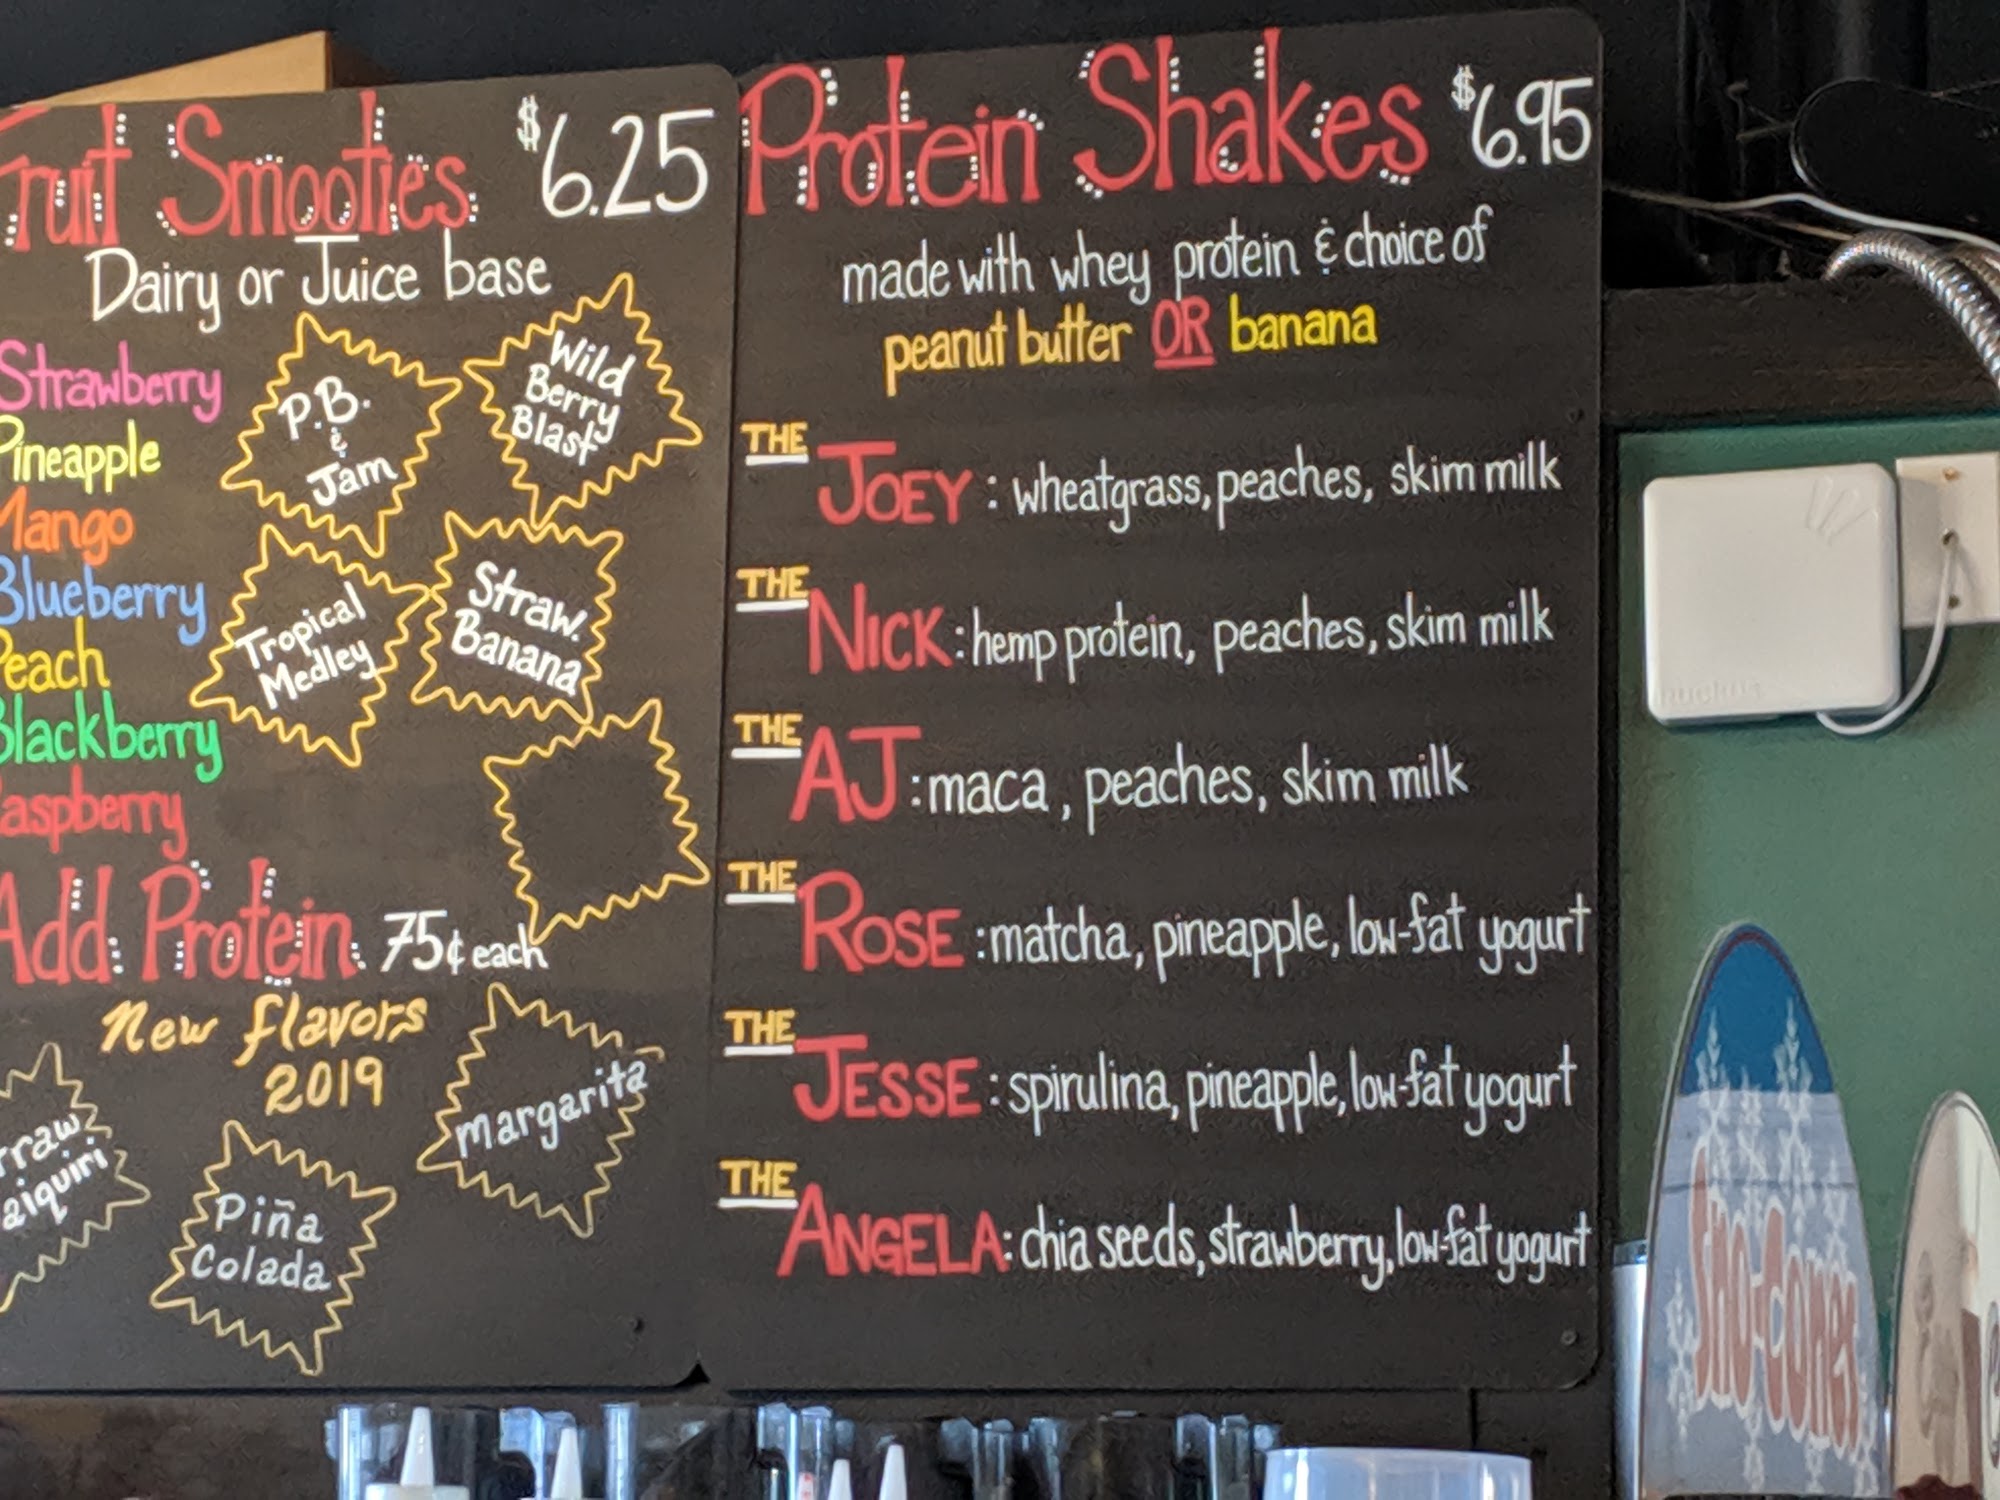 Fruit Smooties $6.25
Dairy or Juice base
Strawberry
Pineapple
Mango
Blueberry
Peach
Blackberry
Raspberry
P.B.
&
Jam
Wild
Berry
Blast
Tropical
Medley
Straw.
Banana
Add Protein 75¢ each
New flavors
2019
Straw
Daiquiri
Piña
Colada
Margarita
Protein Shakes $6.95
made with whey protein & choice of
peanut butter OR banana
THE JOEY: wheatgrass, peaches, skim milk
THE NICK: hemp protein, peaches, skim milk
THE AJ: maca, peaches, skim milk
THE ROSE: matcha, pineapple, low-fat yogurt
THE JESSE: spirulina, pineapple, low-fat yogurt
THE ANGELA: chia seeds, strawberry, low-fat yogurt
Sno-Cones